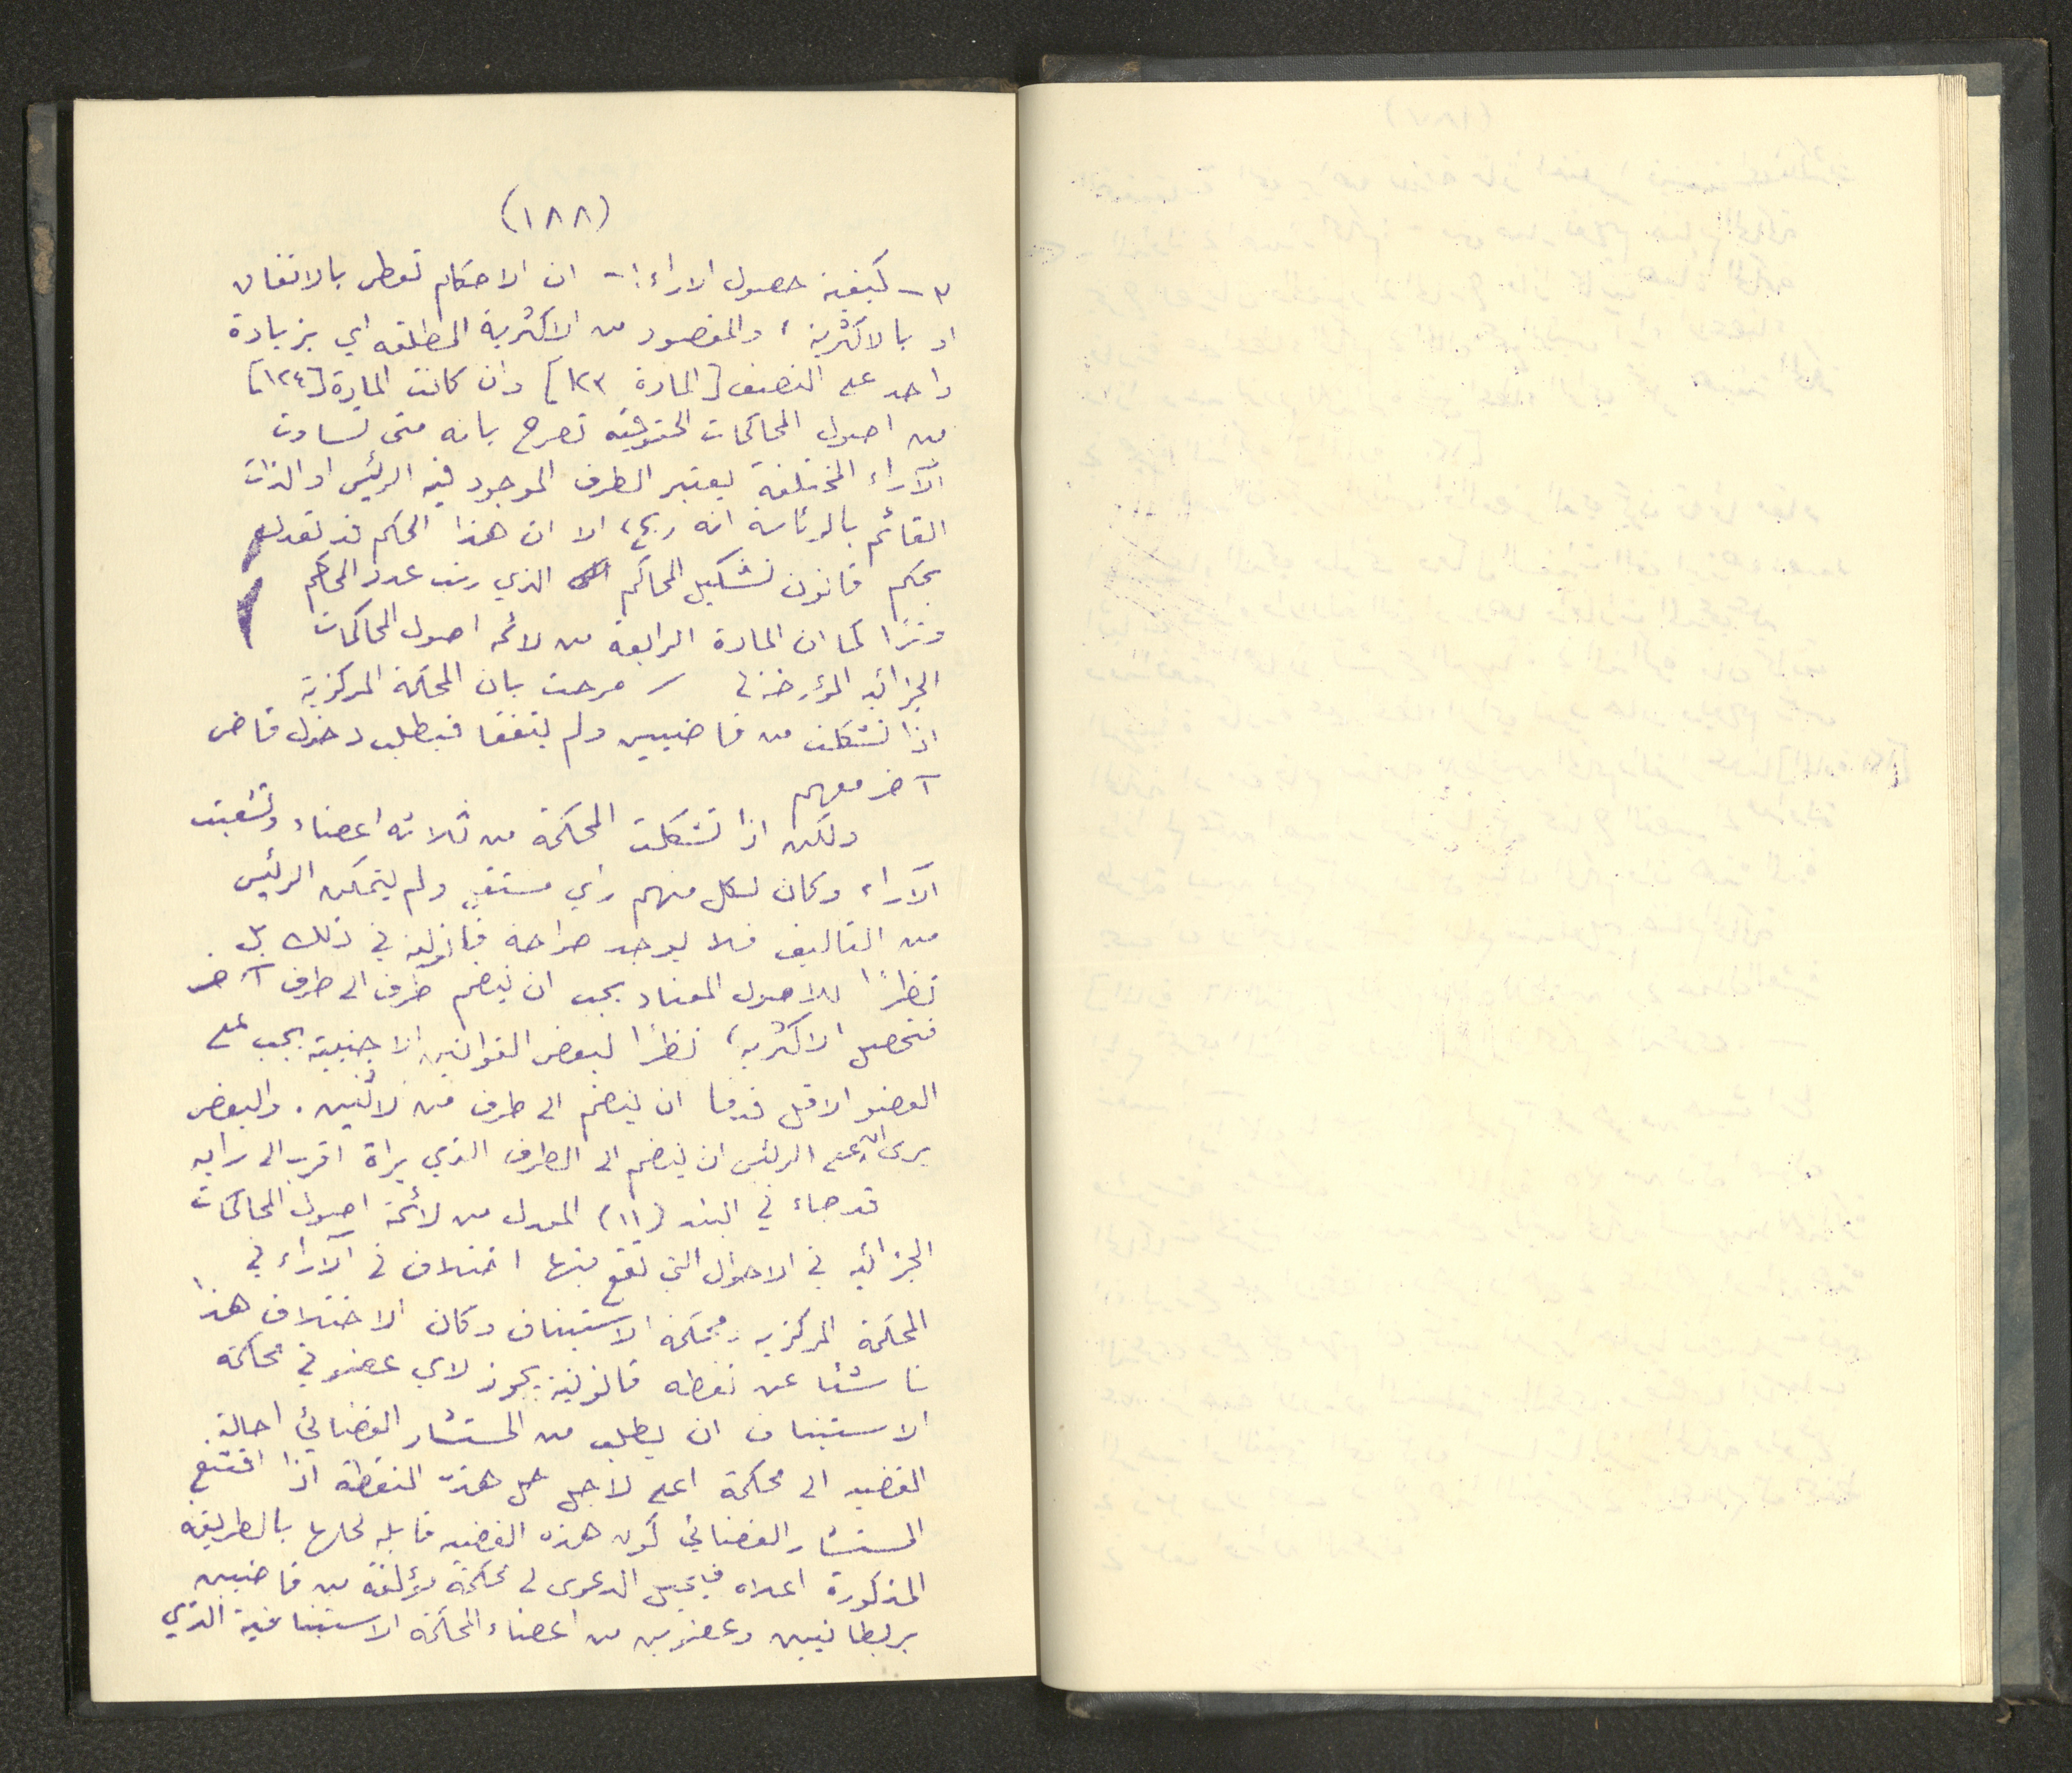 (١٨٨)
٣- كيفية حصول الاراء:- ان الاحكام تعطى بالاتفاق
او بالاكثرية، والمقصود من الاكثرية المطلقه اي بزيادة
واحد على النصف [المادة ١٢٣] وان كانت المادة [١٢٤]
من اصول المحاكمات الحقوقيه تصرح بانه متى تساوت
الآراء المختلفة يعتبر الطرف الموجود فيه الرئيس او الذات
القائم بالرئاسة انه رجح، الا ان هذا الحكم قد تعدل
بحكم قانون تشكيل المحاكم الذي رتب عدد الحاكم
وترًا كما ان المادة الرابعة من لائحه اصول المحاكمات
الجزائيه المؤرخة في / صرحت بان المحكمة المركزية
اذا تشكلت من قاضيين ولم يتفقا فيطلب دخول قاض
آخر معهم
ولكن اذا تشكلت المحكمة من ثلاثه اعضاء وتشعبت
الآراء وكان لكل منهم راي مستقل ولم يتمكن الرئيس
من التاليف فلا يوجد صراحة قانونية في ذلك بل
نظرًا للاصول المعتاد يجب ان ينضم طرف الى طرف آخر
فتحصل الاكثريه، نظرًا لبعض القوانين الاجنبية يجب على
العضو الاقل قدما ان ينضم الى طرف من الاثنين. والبعض
يرى ان على الرئيس ان ينضم الى الطرف الذي يراة اقرب الى رايه
قد جاء في البند (١١) المعدل من لائحة اصول المحاكمات
الجزائيه في الاحوال التي تقع فيها اختلاف في الآراء في
المحكمة المركزيه ومحكمة الاستيناف وكان الاختلاف هذا
ناشئا عن نقطه قانونية يجوز لاي عضو في محكمه
الاستيناف ان يطلب من المستشار القضائي احالة
القضيه الى محكمة اعلى لاجل حل هذه النقطة اذا اقتنع
المستشار القضائي كون هذه القضيه قابله لحلها بالطريقه
المذكورة اعلاه فيحيل الدعوى الى محكمة مؤلفة من قاضيين
بريطانيين وعضوين من اعضاء المحكمه الاستينافية الذي